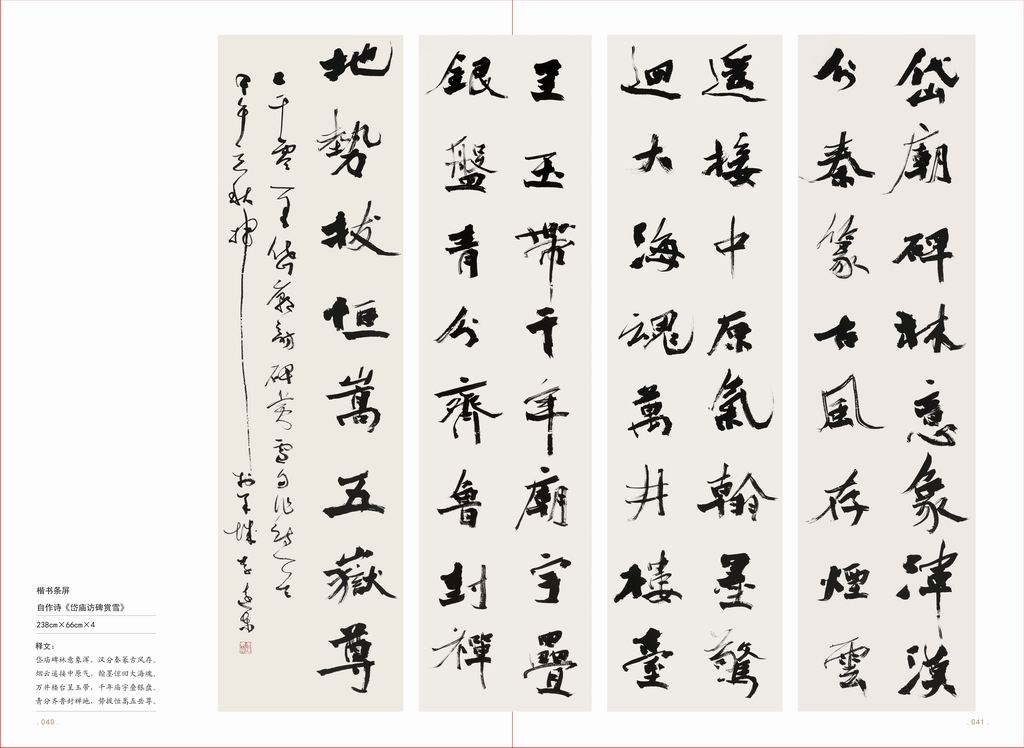 岱廟碑林意象渾漢
分秦篆古風存煙雲
遥接中原氣翰墨驚
迴大海魂萬井樓臺
呈玉帶千年廟宇疊
銀盤青分齊魯封禪
地勢拔恒嵩五嶽尊
岱廟訪碑賞雪自作詩一首
甲午之秋揮於羊城
楷书条屏
自作诗《岱庙访碑赏雪》
238cm×66cm×4
释文：
岱庙碑林意象浑，汉分秦篆古风存。
烟云遥接中原气，翰墨惊回大海魂。
万井楼台呈玉带，千年庙宇叠银盘。
青分齐鲁封禅地，势拔恒嵩五岳尊。
. 040 .
. 041 .